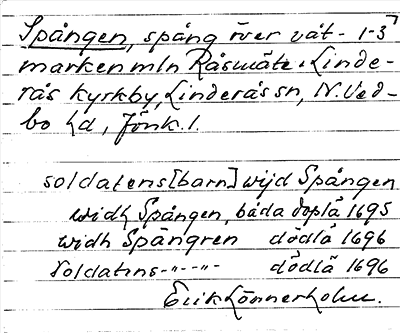 Spången, spång över våt- 1-3
marken mln Råsmäte o Linde-
rås kyrkby, Linderås sn, N. Ved-
bo hd, Jönk. l.
soldatens [barn] wijd Spången
widh Spången, båda döpta 1695
widh Spångren dödla 1696
Soldatens -"- -"- dödla 1696
Erik Lönnerholm.